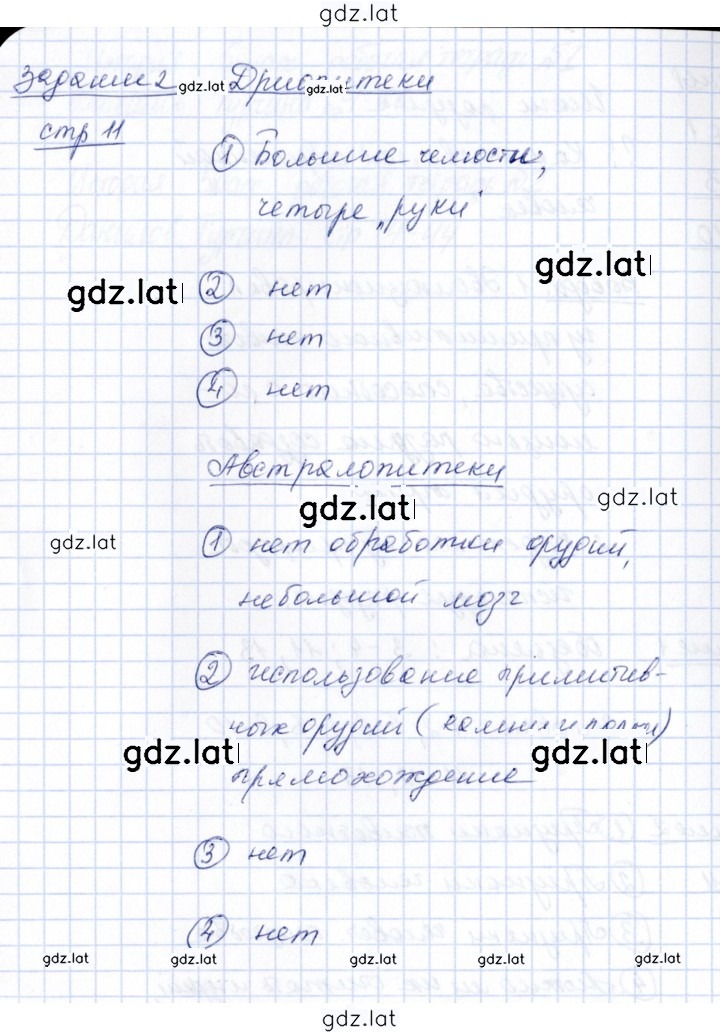 gdz.lat
Задание 2 gdz.lat Дриопитеки
gdz.lat
стр 11
① Большие челюсти,
четыре „руки"
gdz.lat
gdz.lat ② нет
③ нет
④ нет
Австралопитеки
gdz.lat gdz.lat
gdz.lat ① нет обработки орудий,
небольшой мозг
② использование примитив-
ных орудий (камни и палки)
gdz.lat gdz.lat
прямохождение
③ нет
④ нет
gdz.lat gdz.lat gdz.lat gdz.lat gdz.lat
gdz.lat